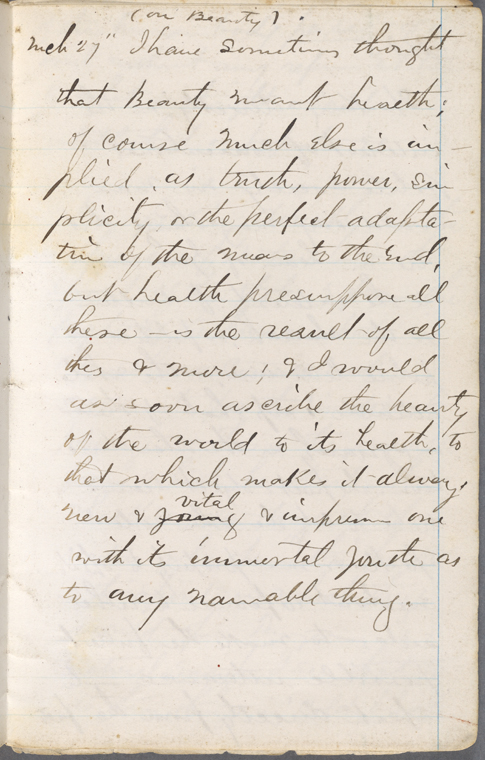 (on Beauty).
Mch 27" I have sometimes thought
that Beauty meant health;
of course much else is im-
plied, as truth, power, sim
plicity, or the perfect adapta-
tion of the means to the end,
but health presuppose all
these - is the result of all
this & more; & I would
as soon ascribe the beauty
of the world to its health, to
that which makes it always
vital
new & young & impress one
with its immortal youth as
to any namable thing.